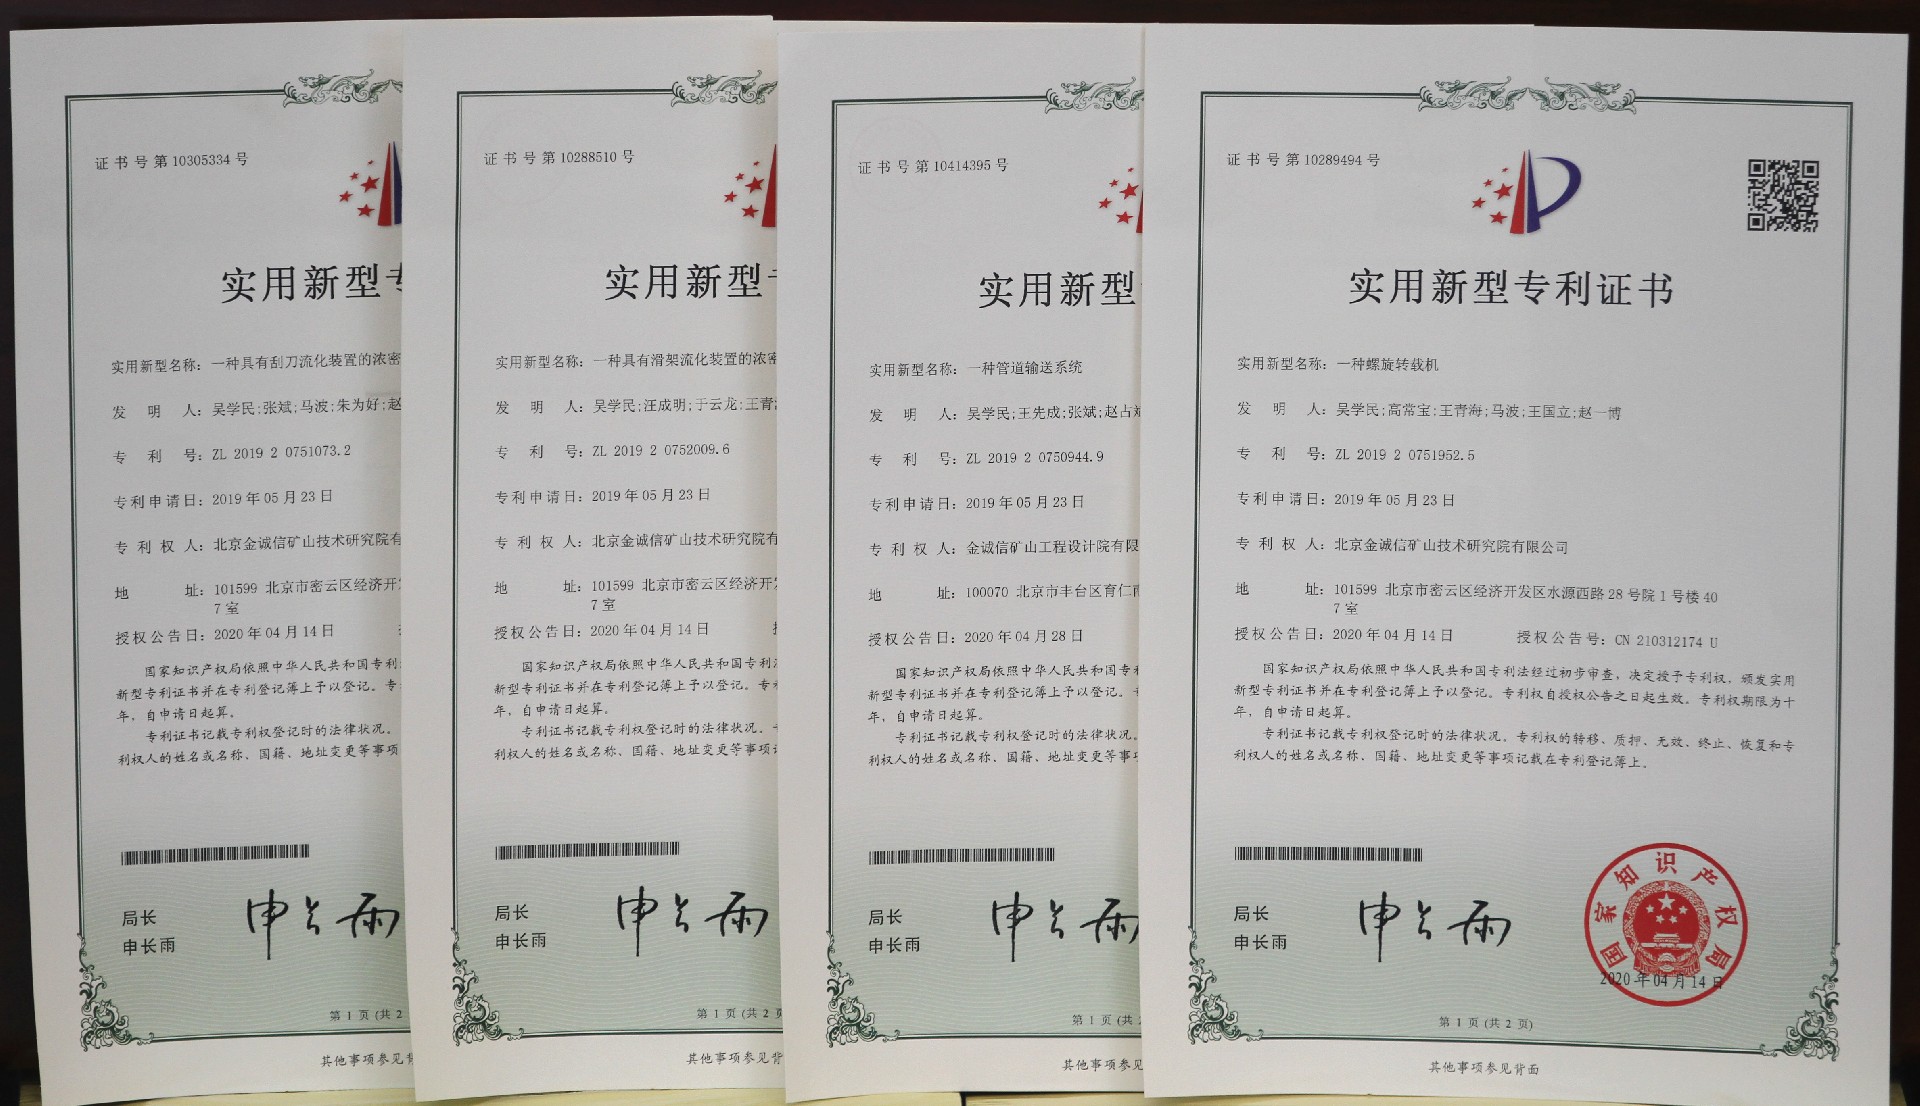 证书号第10305334号
实用新型
实用新型名称：一种具有刮刀流化装置的浓密
发明人：吴学民;张斌;马波;朱为好;赵
专利号：ZL 2019 2 0751073.2
专利申请日：2019年05月23日
专利权人：北京金诚信矿山技术研究院有
地址：101599 北京市密云区经济开
7室
授权公告日：2020年04月14日
国家知识产权局依照中华人民共和国专利
新型专利证书并在专利登记簿上予以登记。专
年，自申请日起算。
专利证书记载专利权登记时的法律状况。
利权人的姓名或名称、国籍、地址变更等事项
局长
申长雨
申长雨
第1页(共2
其他事项参见
证书号第10288510号
实用新型
实用新型名称：一种具有滑架流化装置的浓密
发明人：吴学民;汪成明;于云龙;王青
专利号：ZL 2019 2 0752009.6
专利申请日：2019年05月23日
专利权人：北京金诚信矿山技术研究院有
地址：101599 北京市密云区经济开
7室
授权公告日：2020年04月14日
国家知识产权局依照中华人民共和国专利
新型专利证书并在专利登记簿上予以登记。专
年，自申请日起算。
专利证书记载专利权登记时的法律状况。专
利权人的姓名或名称、国籍、地址变更等事项
局长
申长雨
申长雨
第1页(共2
其他事项参见
证书号第10414395号
实用新型
实用新型名称：一种管道输送系统
发明人：吴学民;王先成;张斌;赵占斌
专利号：ZL 2019 2 0750944.9
专利申请日：2019年05月23日
专利权人：金诚信矿山工程设计院有限
地址：100070 北京市丰台区育仁南
授权公告日：2020年04月28日
国家知识产权局依照中华人民共和国专
新型专利证书并在专利登记簿上予以登记。
年，自申请日起算。
专利证书记载专利权登记时的法律状况。
利权人的姓名或名称、国籍、地址变更等事
局长
申长雨
申长雨
第1页(共
其他事项参见
证书号第10289494号
实用新型专利证书
实用新型名称：一种螺旋转载机
发明人：吴学民;高常宝;王青海;马波;王国立;赵一博
专利号：ZL 2019 2 0751952.5
专利申请日：2019年05月23日
专利权人：北京金诚信矿山技术研究院有限公司
地址：101599 北京市密云区经济开发区水源西路28号院1号楼40
7室
授权公告日：2020年04月14日 授权公告号：CN 210312174 U
国家知识产权局依照中华人民共和国专利法经过初步审查，决定授予专利权，颁发实用
新型专利证书并在专利登记簿上予以登记。专利权自授权公告之日起生效。专利权期限为十
年，自申请日起算。
专利证书记载专利权登记时的法律状况。专利权的转移、质押、无效、终止、恢复和专
利权人的姓名或名称、国籍、地址变更等事项记载在专利登记簿上。
局长
申长雨
申长雨
国家知识产权局
2020年04月14日
第1页(共2页)
其他事项参见背面